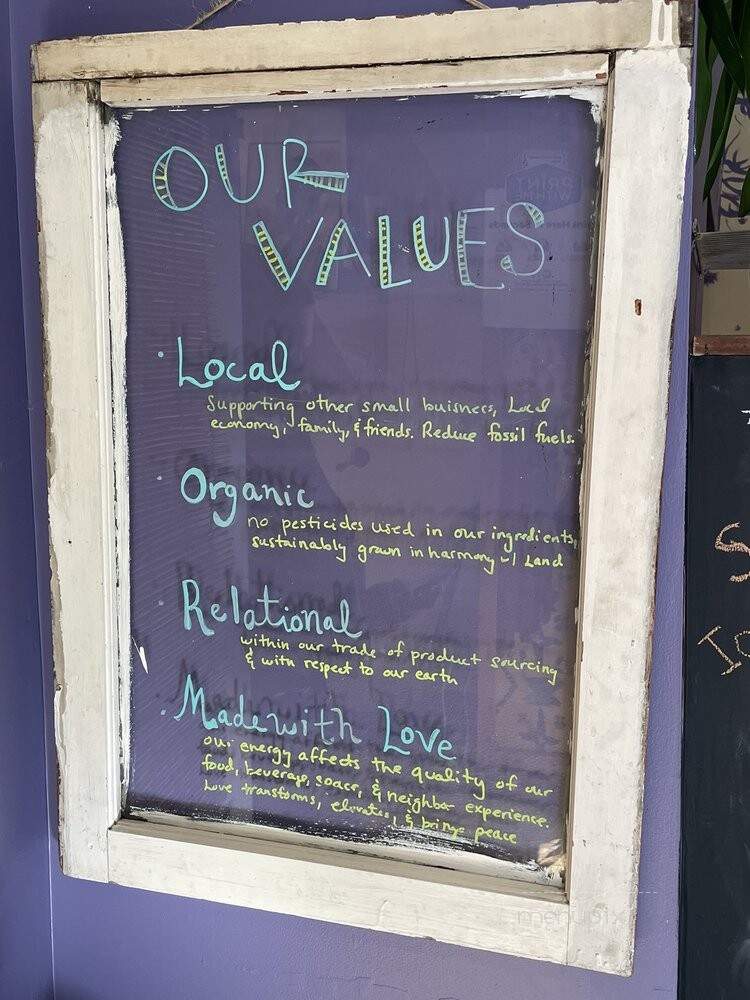 OUR
VALUES
• Local
Supporting other small buisness, Local
economy, family, & friends. Reduce fossil fuels.
• Organic
no pesticides used in our ingredients,
sustainably grown in harmony w/ Land
• Relational
within our trade of product sourcing
& with respect to our earth
• Made with Love
our energy affects the quality of our
food, beverage, space, & neighbor experience.
Love transforms, elevates, & brings peace
PRINT
menupix